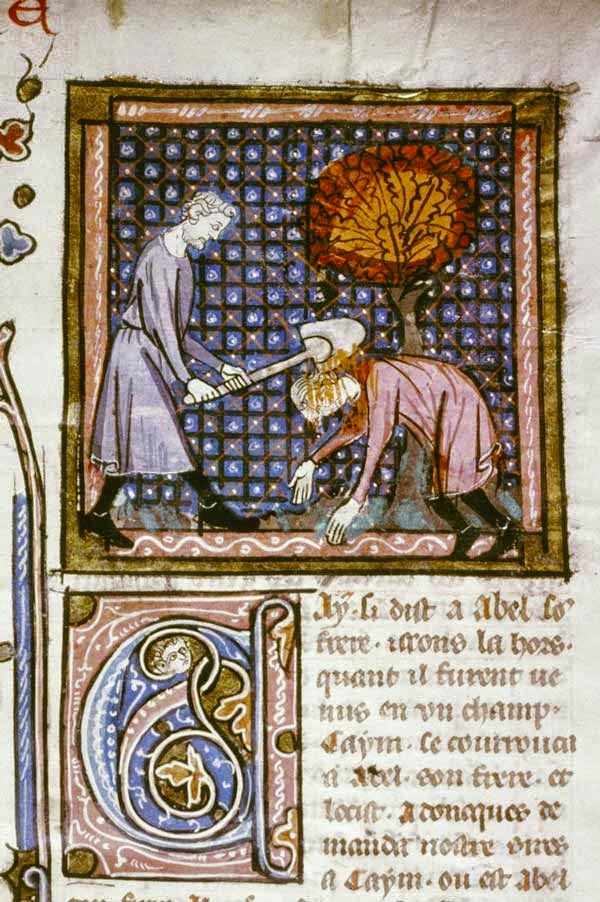 C
Ayͫ. si dist a Abel so᷒
frere. isrons la hors.
quant il furent ve
nus en un champ.
Caÿm. se courrouca
a Abel. son frere. et
locist. Adoncques de
manda nostre sires
a Caÿm. ou est Abel